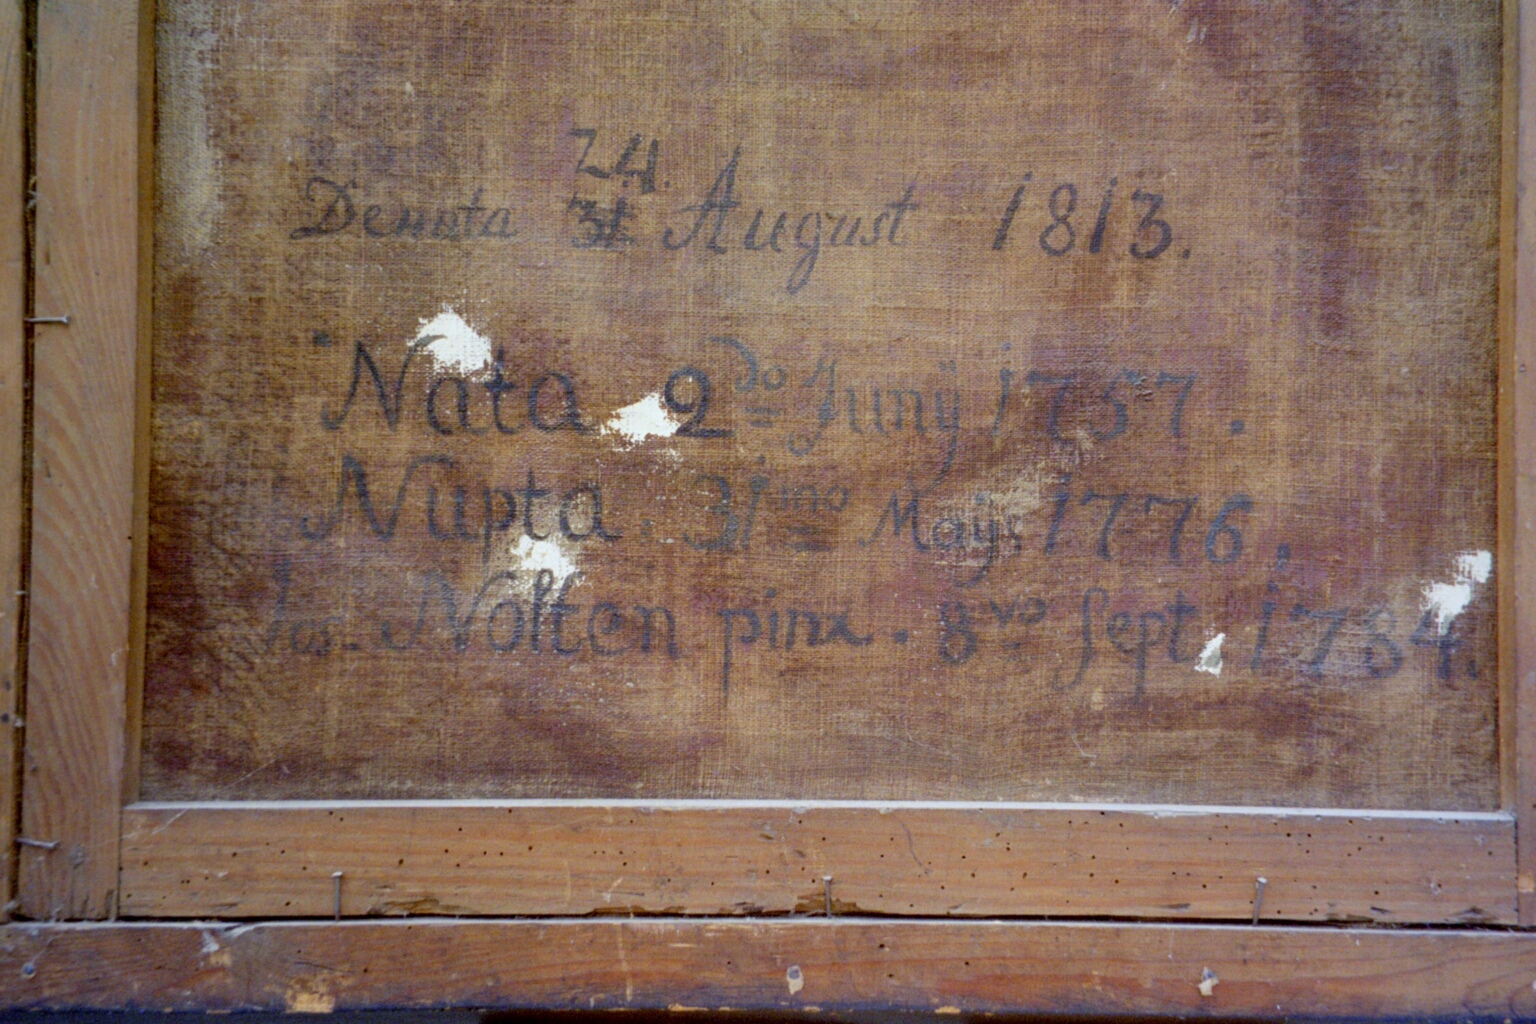 24.
Denata 31 August 1813.
Nata 2do Junÿ 1757.
Nupta. 31mo Maÿ. 1776.
Jos. Nolten pinx. 3vo Sept. 1784.